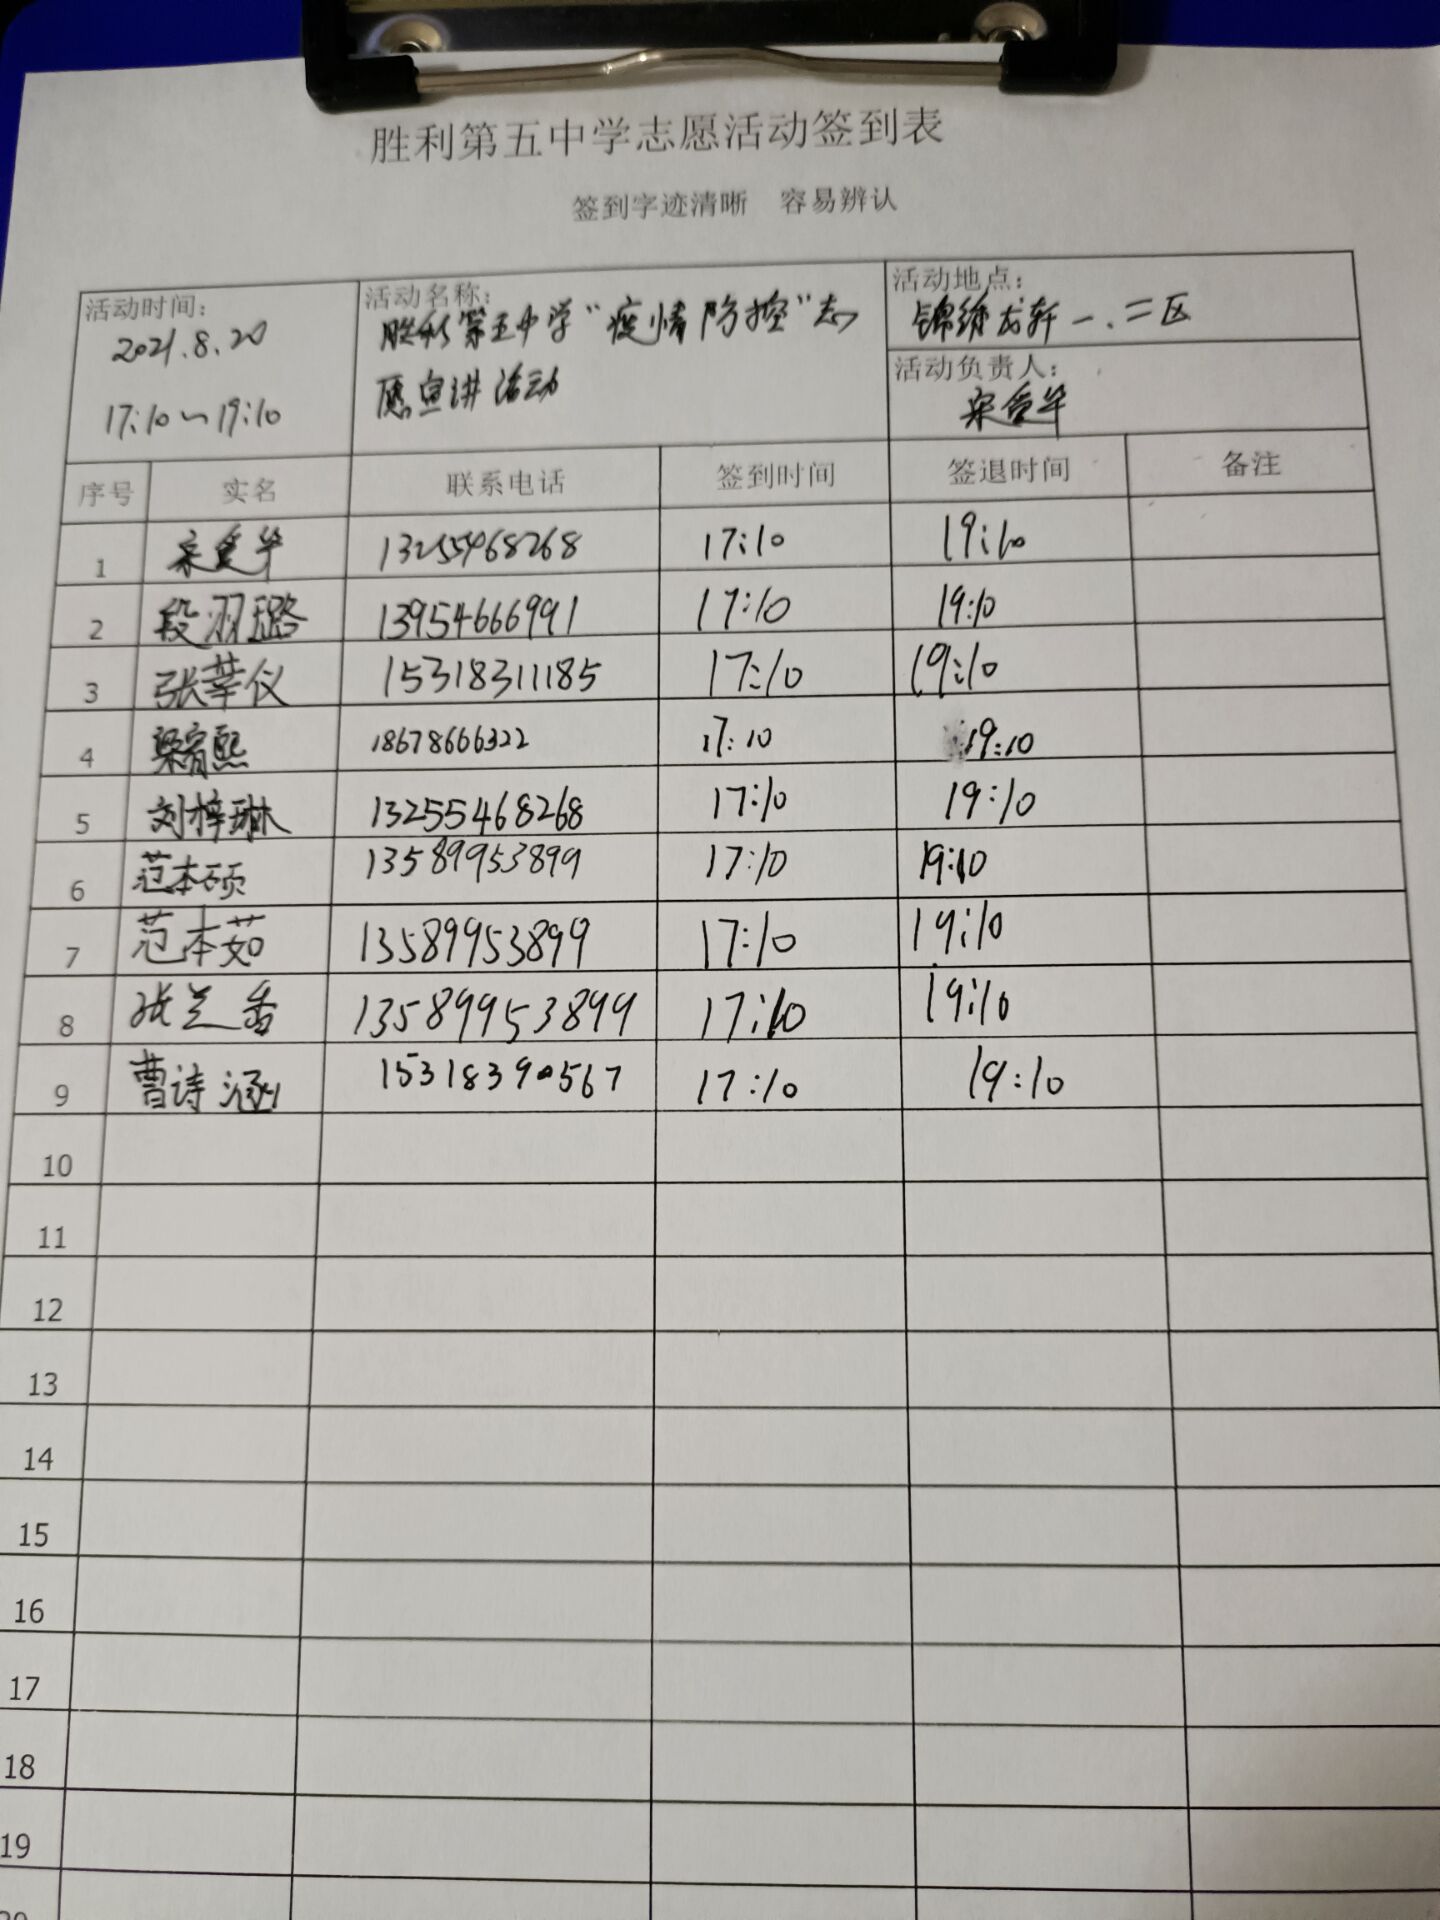 胜利第五中学志愿活动签到表
签到字迹清晰 容易辨认
活动时间：
2021.8.20
17:10～19:10
活动名称：
胜利第五中学“疫情防控”志
愿宣讲活动
活动地点：
锦绣龙轩一.二区
活动负责人：
宋爱华
序号 实名 联系电话 签到时间 签退时间 备注
1 宋爱华 13255468268 17:10 19:10
2 段羽璐 13954666991 17:10 19:10
3 张莘仪 15318311185 17:10 19:10
4 梁宵熙 18678666322 17:10 19:10
5 刘梓琳 13255468268 17:10 19:10
6 范本硕 13589953899 17:10 19:10
7 范本茹 13589953899 17:10 19:10
8 张兰香 13589953899 17:10 19:10
9 曹诗涵 15318390567 17:10 19:10
10
11
12
13
14
15
16
17
18
19